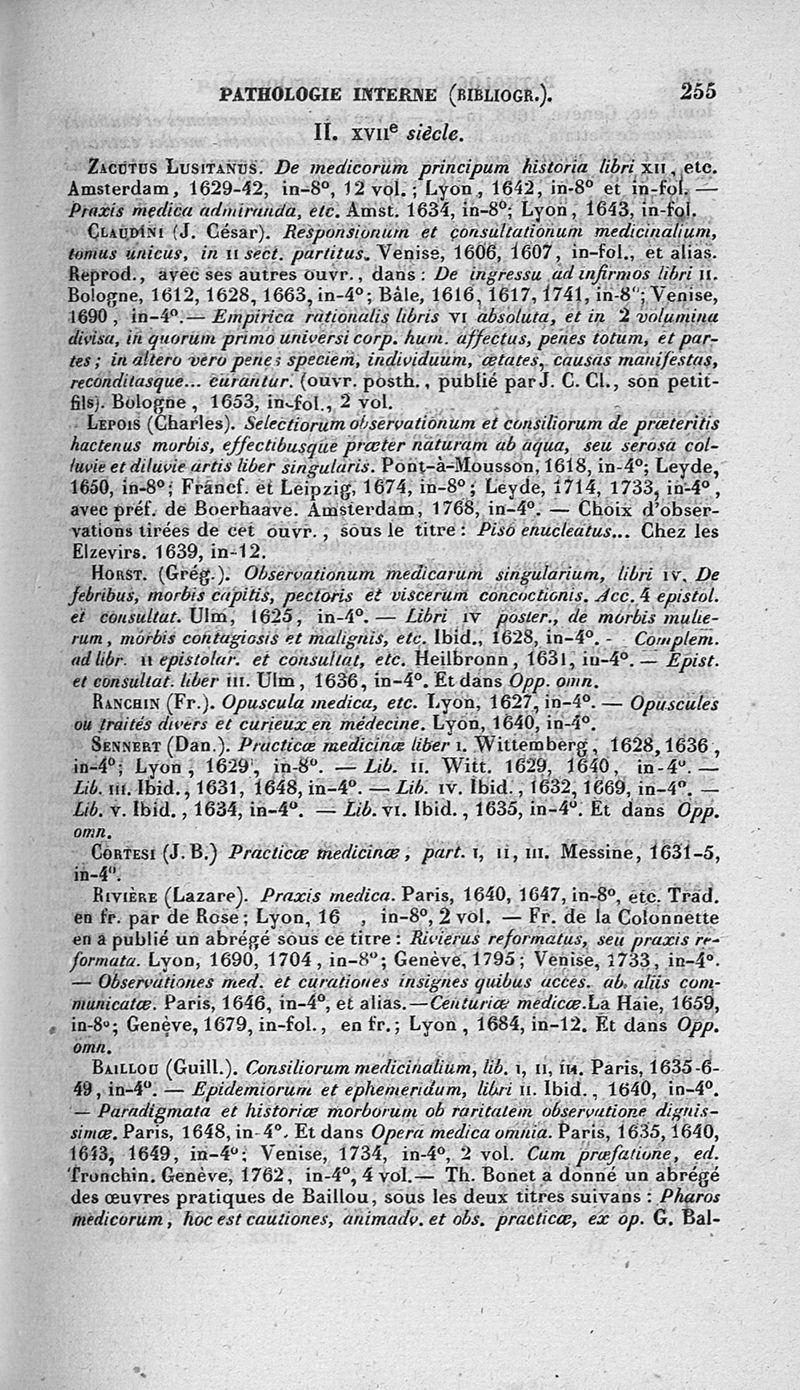 PATHOLOGIE INTERNE (BIBLIOGR.). 255
II. XVIIe siècle.
ZACUTUS LUSITANUS. De medicorum principum historia libri XII, etc.
Amsterdam, 1629-42, in-8°, 12 vol.; Lyon, 1642, in-8° et in-fol. —
Praxis medica admiranda, etc. Amst. 1634, in-8°; Lyon, 1643, in-fol.
CLAUDINI (J. César). Responsionum et consultationum medicinalium,
tomus unicus, in II sect. partitus. Venise, 1606, 1607, in-fol., et alias.
Reprod., avec ses autres ouvr., dans : De ingressu ad infirmos libri II.
Bologne, 1612, 1628, 1663, in-4°; Bâle, 1616, 1617, 1741, in-8°; Venise,
1690, in-4°. — Empirica rationalis libris VI absoluta, et in 2 volumina
divisa, in quorum primo universi corp. hum. affectus, penes totum, et par-
tes; in altero vero penes speciem, individuum, ætates, causas manifestas,
reconditasque... curantur. (ouvr. posth., publié par J. C. Cl., son petit-
fils). Bologne, 1653, in-fol., 2 vol.
LEPOIS (Charles). Selectiorum observationum et consiliorum de præteritis
hactenus morbis, effectibusque præter naturam ab aqua, seu serosa col-
luvie et diluvie artis liber singularis. Pont-à-Mousson, 1618, in-4°; Leyde,
1650, in-8°; Francf. et Leipzig, 1674, in-8°; Leyde, 1714, 1733, in-4°,
avec préf. de Boerhaave. Amsterdam, 1768, in-4°. — Choix d'obser-
vations tirées de cet ouvr., sous le titre : Piso enucleatus... Chez les
Elzevirs. 1639, in-12.
HORST. (Grég.). Observationum medicarum singularium, libri IV. De
febribus, morbis capitis, pectoris et viscerum concoctionis. Acc. 4 epistol.
et consultat. Ulm, 1625, in-4°. — Libri IV poster., de morbis mulie-
rum, morbis contagiosis et malignis, etc. Ibid., 1628, in-4°. - Complem.
ad libr. II epistolar. et consultat, etc. Heilbronn, 1631, in-4°. — Epist.
et consultat. liber III. Ulm, 1636, in-4°. Et dans Opp. omn.
RANCHIN (Fr.). Opuscula medica, etc. Lyon, 1627, in-4°. — Opuscules
ou traités divers et curieux en médecine. Lyon, 1640, in-4°.
SENNERT (Dan.). Practicæ medicinæ liber I. Wittemberg, 1628, 1636,
in-4°; Lyon, 1629, in-8°. — Lib. II. Witt. 1629, 1640, in-4°. —
Lib. III. Ibid., 1631, 1648, in-4°. — Lib. IV. Ibid., 1632, 1669, in-4°. —
Lib. V. Ibid., 1634, in-4°. — Lib. VI. Ibid., 1635, in-4°. Et dans Opp.
omn.
CORTESI (J. B.) Practicæ medicinæ, part. I, II, III. Messine, 1631-5,
in-4°.
RIVIÈRE (Lazare). Praxis medica. Paris, 1640, 1647, in-8°, etc. Trad.
en fr. par de Rose; Lyon, 16 , in-8°, 2 vol. — Fr. de la Colonnette
en a publié un abrégé sous ce titre : Rivierus reformatus, seu praxis re-
formata. Lyon, 1690, 1704, in-8°; Genève, 1795; Venise, 1733, in-4°.
— Observationes med. et curationes insignes quibus acces. ab. aliis com-
municatæ. Paris, 1646, in-4°, et alias. — Centuriæ medicæ. La Haie, 1659,
in-8°; Genève, 1679, in-fol., en fr.; Lyon, 1684, in-12. Et dans Opp.
omn.
BAILLOU (Guill.). Consiliorum medicinalium, lib. I, II, III. Paris, 1635-6-
49, in-4°. — Epidemiorum et ephemeridum, libri II. Ibid., 1640, in-4°.
— Paradigmata et historiæ morborum ob raritatem observatione dignis-
simæ. Paris, 1648, in-4°. Et dans Opera medica omnia. Paris, 1635, 1640,
1643, 1649, in-4°; Venise, 1734, in-4°, 2 vol. Cum præfatione, ed.
Tronchin. Genève, 1762, in-4°, 4 vol. — Th. Bonet a donné un abrégé
des œuvres pratiques de Baillou, sous les deux titres suivans : Pharos
medicorum, hoc est cautiones, animadv. et obs. practicæ, ex op. G. Bal-